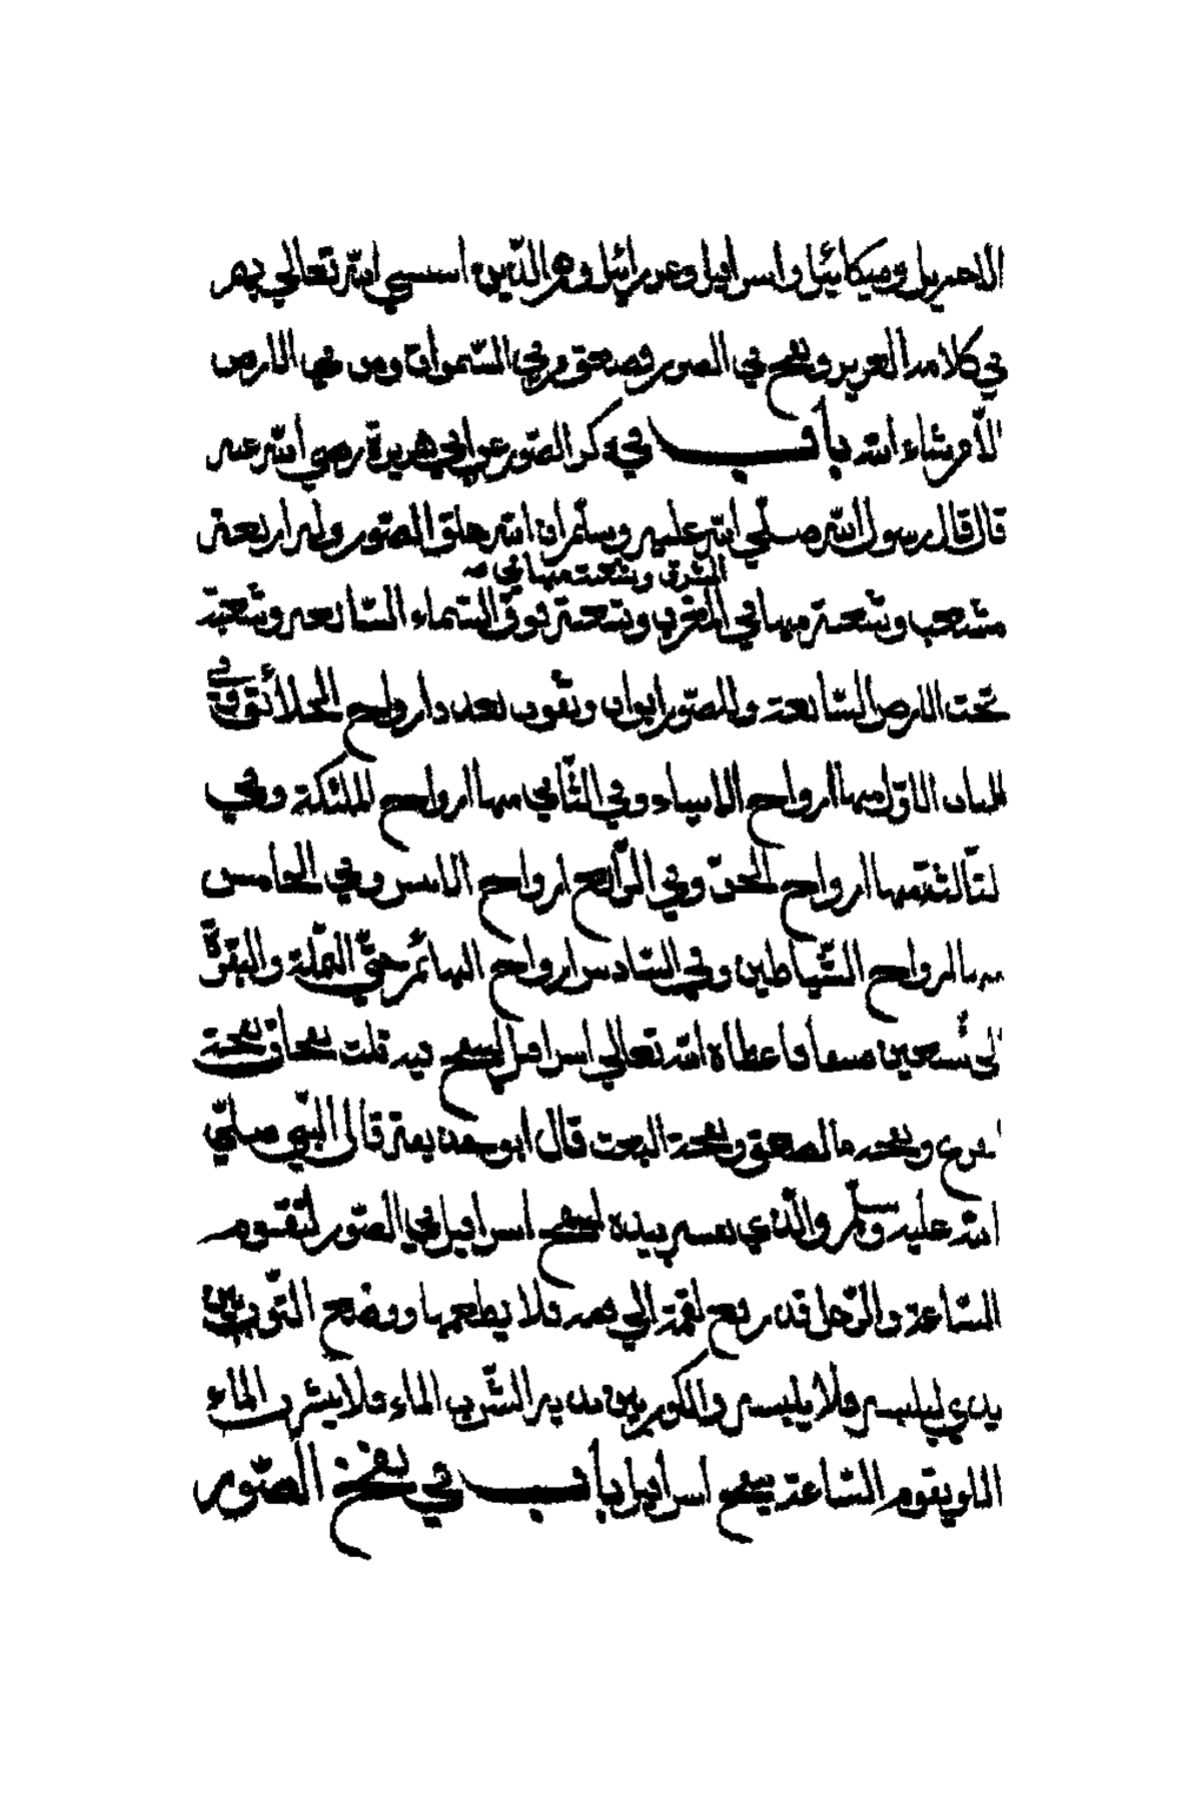 الا جبريل وميكائيل واسرافيل وعزرائيل وهم الذين استثني الله تعالي بهم
في كلامه العزيز ونفخ في الصور فصعق من في السموات ومن فيها الارض
الا من شاء الله باب في ذكر الصور عن ابي هريرة رضي الله عنه
قال قال رسول الله صلي الله عليه وسلم ان الله خلق الصور وله اربعة
المشرق وشعبة منها في
شعب وشعبة منها في المغرب وشعبة فوق السماء السابعة وشعبة
تحت الارض السابعة وللصور ابواب وثقوب بعدد ارواح الخلائق وفي
الباب الاول منها ارواح الانبياء وفي الثاني منها ارواح الملئكة وفي
الثالثة منها ارواح الجن وفي الرابع ارواح الانس وفي الخامس
منها ارواح الشياطين وفي السادس ارواح البهائم حتي النملة والبقة
الي سبعين صنفا فاعطاه الله تعالي اسرافيل لينفخ فيه ثلث نفخات نفخة
الفزع ونفخة الصعق ونفخة البعث قال ابو حذيفة قال النبي صلي
الله عليه وسلم والذي نفسي بيده لينفخ اسرافيل في الصور لتقوم
الساعة والرجل قد رفع لقمة الي فمه فلا يطعمها ووضع الثوب بين
يدي ليلبس فلا يلبس والكوز بين يديه الشرب الماء فلا يشرب الماء
الا ويقوم الساعة ينفخ اسرافيل باب في نفخ الصور